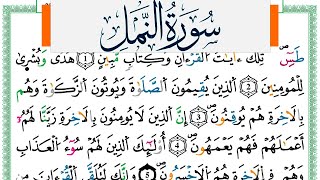 سُورَةُ النَّمْلِ
طٓسٓۚ تِلْكَ ءَايَٰتُ الْقُرْءَانِ وَكِتَابٍ مُّبِينٍ ۝١ هُدًى وَبُشْر۪يٰ
لِلْمُومِنِينَ ۝٢ الَّذِينَ يُقِيمُونَ الصَّلَوٰةَ وَيُوتُونَ الزَّكَوٰةَ وَهُم
بِالَاخِرَةِ هُمْ يُوقِنُونَ ۝٣ إِنَّ الَّذِينَ لَا يُومِنُونَ بِالَاخِرَةِ زَيَّنَّا لَهُمُ
أَعْمَٰلَهُمْ فَهُمْ يَعْمَهُونَ ۝٤ أُوْلَٰٓئِكَ الَّذِينَ لَهُمْ سُوٓءُ الْعَذَابِ
وَهُمْ فِي الَاخِرَةِ هُمُ الَاخْسَرُونَ ۝٥ وَإِنَّكَ لَتُلَقَّي الْقُرْءَانَ